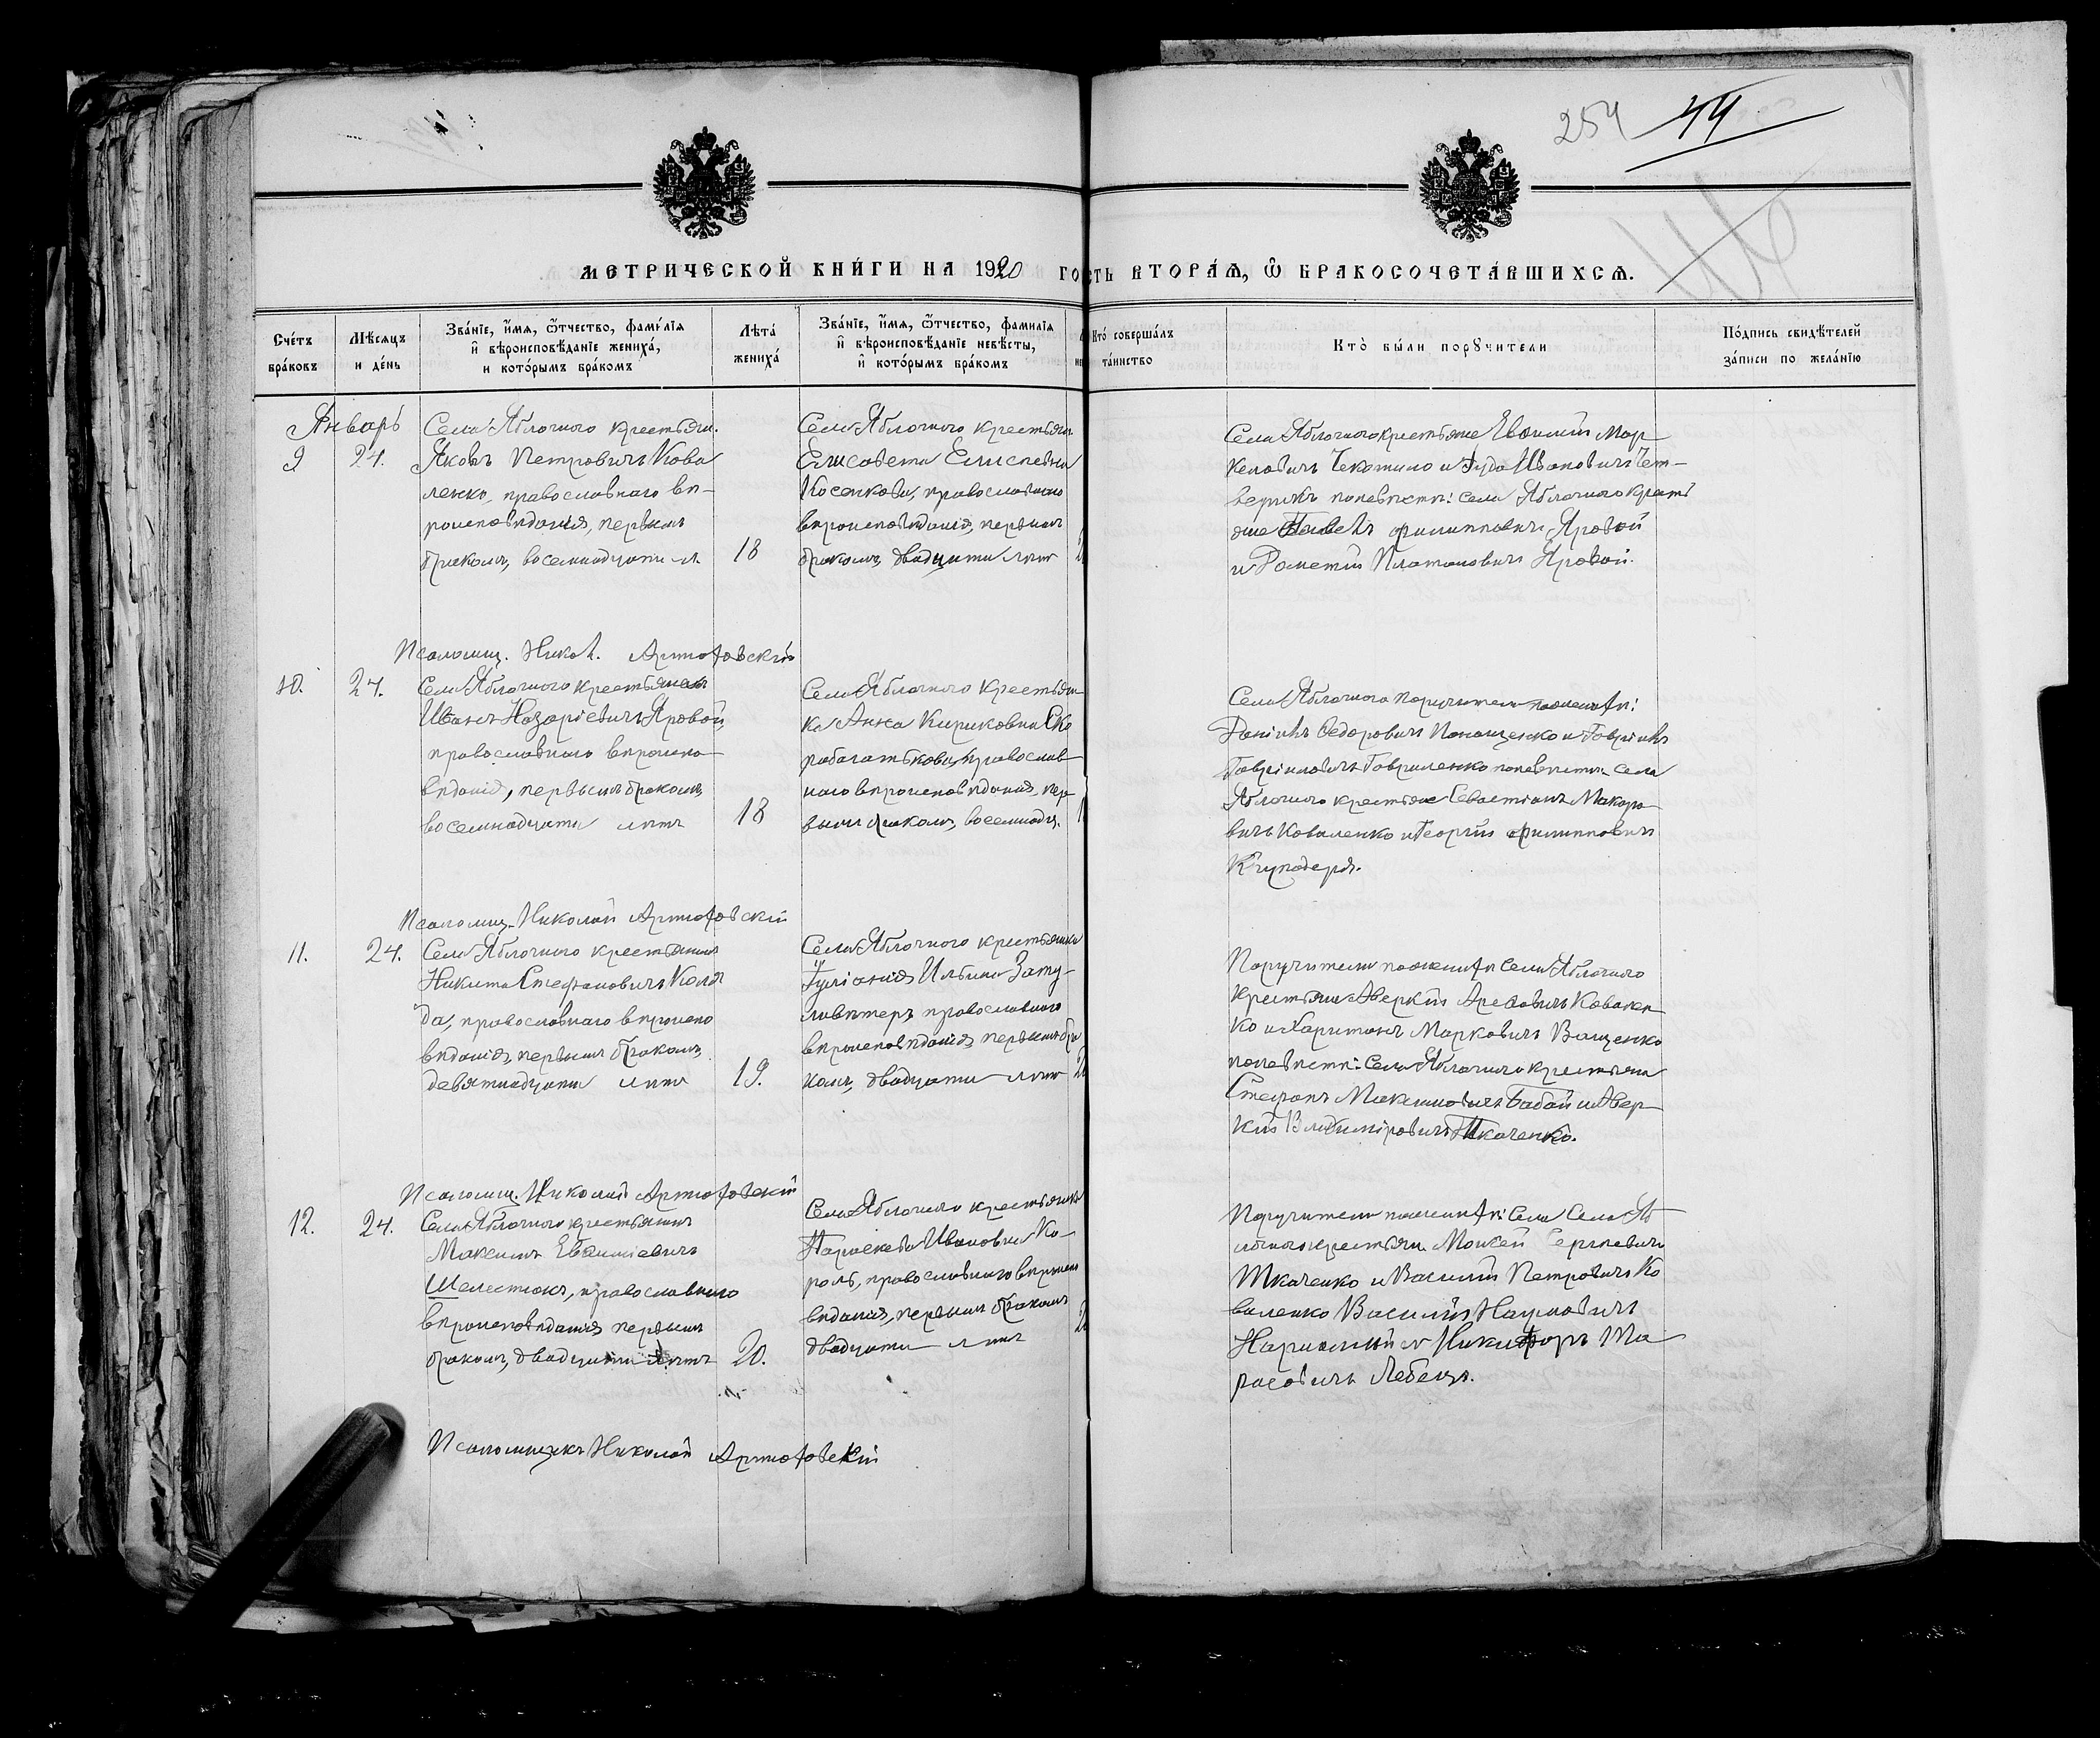 254 44
44
МЕТРИЧЕСКОЙ КНИ́ГИ НА 1920 ГО
СТЬ ВТОРА́Ѧ, Ѿ БРАКОСОЧЕТА́ВШИХСѦ.
Сче́тъ
бра́ковъ
Мѣ́сѧцъ
и де́нь
Зва́нїе, и́мѧ, ѻ́тчество, фами́лїѧ
и҆ вѣроисповѣ́данїе жениха́,
и кото́рымъ бра́комъ
Лѣта́
жениха́
Зва́нїе, и́мѧ, ѻ́тчество, фамилїѧ
и҆ вѣроисповѣ́данїе невѣ́сты,
и҆ кото́рымъ бра́комъ
Кто́ соверша́лъ
та́инство
Кто̀ бы́ли порꙋчи́тели
По́дпись свидѣ́телей
за́писи по жела́нїю
Январь
9
24.
Села Яблочного крестьян.
Яковъ Петровичъ Кова
ленко, православнаго вѣ-
роисповѣданія, первымъ
бракомъ, восемнадцати л.
18
Села Яблочного крестьян.
Елисавета Елисеевна
Косенкова, православнаго
вѣроисповѣданія, первымъ
бракомъ, двадцати лѣтъ
Села Яблочного крестьяне Евфимій Мар
келовичъ Чекатило и Іуда Ивановичъ Чет-
верикъ по невѣсты: села Яблочного кресть
яне Павелъ Филипповичъ Яровой
и Платоновичъ Яровой.
Псаломщ. Никол. Артюховскій
10.
24.
Села Яблочного крестьянинъ
Иванъ Назаріевичъ Яровой,
православнаго вѣроиспо
вѣданія, первымъ бракомъ
восемнадцати лѣтъ
18
Села Яблочного крестьян
ка Анна Кириковна Ско
робогатькова, православ
наго вѣроисповѣданія, пер
вымъ бракомъ, восемнадц.
Села Яблочного поручители по женихѣ:
Даніилъ Ѳедоровичъ Понащенко и Гавріилъ
Гавріиловичъ Гавриленко по невѣсты села
Яблочного крестьяне Севастіанъ Макаро
вичъ Коваленко и Георгій Филипповичъ
Псаломщ. Николай Артюховскій
11.
24.
Села Яблочного крестьянинъ
Никита Стефановичъ Коля
да, православнаго вѣроиспо
вѣданія, первымъ бракомъ
девятнадцати лѣтъ
19.
Села Яблочного крестьянка
Іуліанія Ильина Зату-
ливѣтеръ, православнаго
вѣроисповѣданія, первымъ бра
комъ, двадцати лѣтъ
Поручители по женихѣ Села Яблочного
крестьяне Аверкій Коваленко
ко и Харитонъ Марковичъ Ващенко
по невѣстѣ: Села Яблочного крестьяне
Стефанъ Максимовичъ Бабай и Авер
кій Владиміровичъ Ткаченко.
Псаломщ. Николай Артюховскій
12.
24.
Села Яблочного крестьянинъ
Максимъ Евфиміевичъ
Шелестюкъ, православнаго
вѣроисповѣданія первымъ
бракомъ, двадцати лѣтъ
20.
Села Яблочного крестьянка
Параскева Ивановна Ко-
роль, православнаго вѣроиспо
вѣданія, первымъ бракомъ
двадцати лѣтъ
Поручители по женихѣ: Села Села Яб
лочного крестьян. Моисей Сергѣевичъ
Ткаченко и Василій Петровичъ Ко
валенко Василій Наумовичъ
Нарижній и Никифоръ Та
расовичъ Лебецъ.
Псаломщикъ Николай Артюховскій